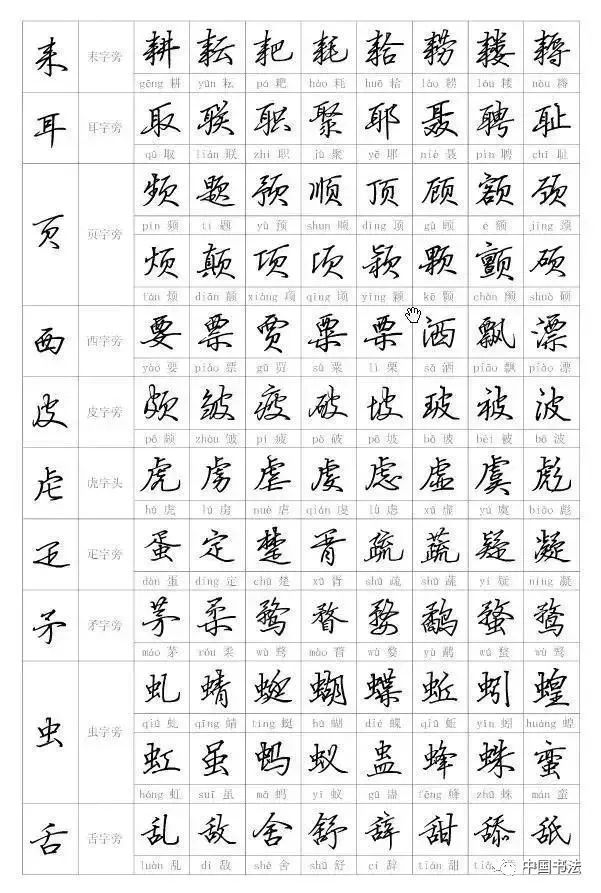 耒 耒字旁 耕 耘 耙 耗 耠 耢 耧 耨
gēng 耕 yún 耘 pá 耙 hào 耗 huō 耠 lào 耢 lóu 耧 nòu 耨
耳 耳字旁 取 联 职 聚 耶 聂 聘 耻
qǔ 取 lián 联 zhí 职 jù 聚 yē 耶 niè 聂 pìn 聘 chǐ 耻
页 页字旁 频 题 预 顺 顶 顾 额 颈
pín 频 tí 题 yù 预 shùn 顺 dǐng 顶 gù 顾 é 额 jǐng 颈
烦 颠 项 顷 颖 颗 颤 硕
fán 烦 diān 颠 xiàng 项 qǐng 顷 yǐng 颖 kē 颗 chàn 颤 shuò 硕
西 西字旁 要 票 贾 粟 栗 洒 飘 漂
yào 要 piào 票 gǔ 贾 sù 粟 lì 栗 sǎ 洒 piāo 飘 piāo 漂
皮 皮字旁 颇 皱 疲 破 坡 玻 被 波
pō 颇 zhòu 皱 pí 疲 pò 破 pō 坡 bō 玻 bèi 被 bō 波
虍 虎字头 虎 虏 虐 虔 虑 虚 虞 彪
hǔ 虎 lǔ 虏 nuè 虐 qián 虔 lǜ 虑 xū 虚 yú 虞 biāo 彪
疋 疋字旁 蛋 定 楚 胥 疏 蔬 疑 凝
dàn 蛋 dìng 定 chǔ 楚 xū 胥 shū 疏 shū 蔬 yí 疑 níng 凝
矛 矛字旁 茅 柔 骛 瞀 婺 鹉 蝥 鹜
máo 茅 róu 柔 wù 骛 mào 瞀 wù 婺
虫 虫字旁 虬 蜻 蜓 蝴 蝶 蚯 蚓 蝗
qiú 虬 qīng 蜻 tíng 蜓 hú 蝴 dié 蝶 qiū 蚯 yǐn 蚓 huáng 蝗
虹 虽 蚂 蚁 蛊 蜂 蛛 蛮
hóng 虹 suī 虽 mǎ 蚂 yǐ 蚁 gǔ 蛊 fēng 蜂 zhū 蛛 mán 蛮
舌 舌字旁 乱 敌 舍 舒 辞 甜 舔 舐
luàn 乱 dí 敌 shě 舍 shū 舒 cí 辞 tián 甜
中国书法